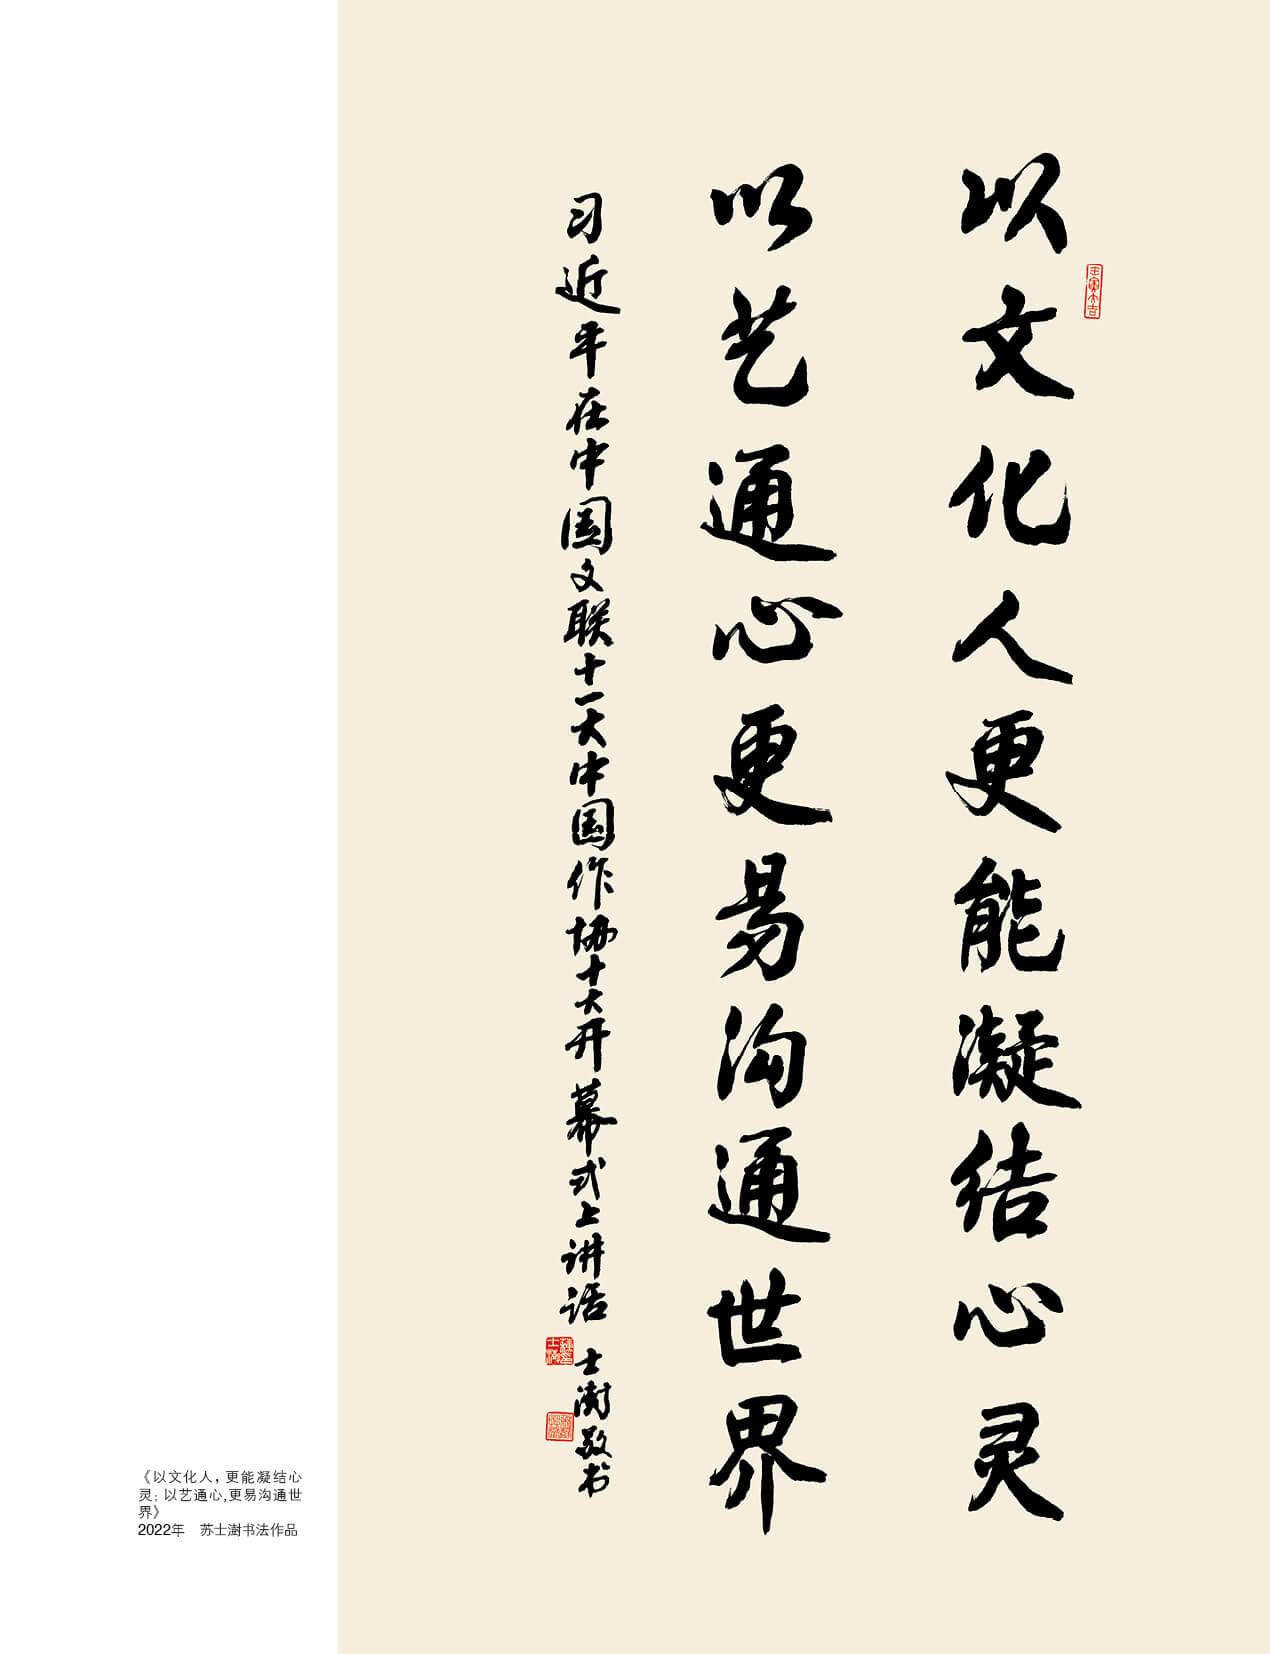 以文化人更能凝结心灵
以艺通心更易沟通世界
习近平在中国文联十一大中国作协十大开幕式上讲话
士澍敬书
《以文化人，更能凝结心
灵；以艺通心,更易沟通世
界》
2022年 苏士澍书法作品